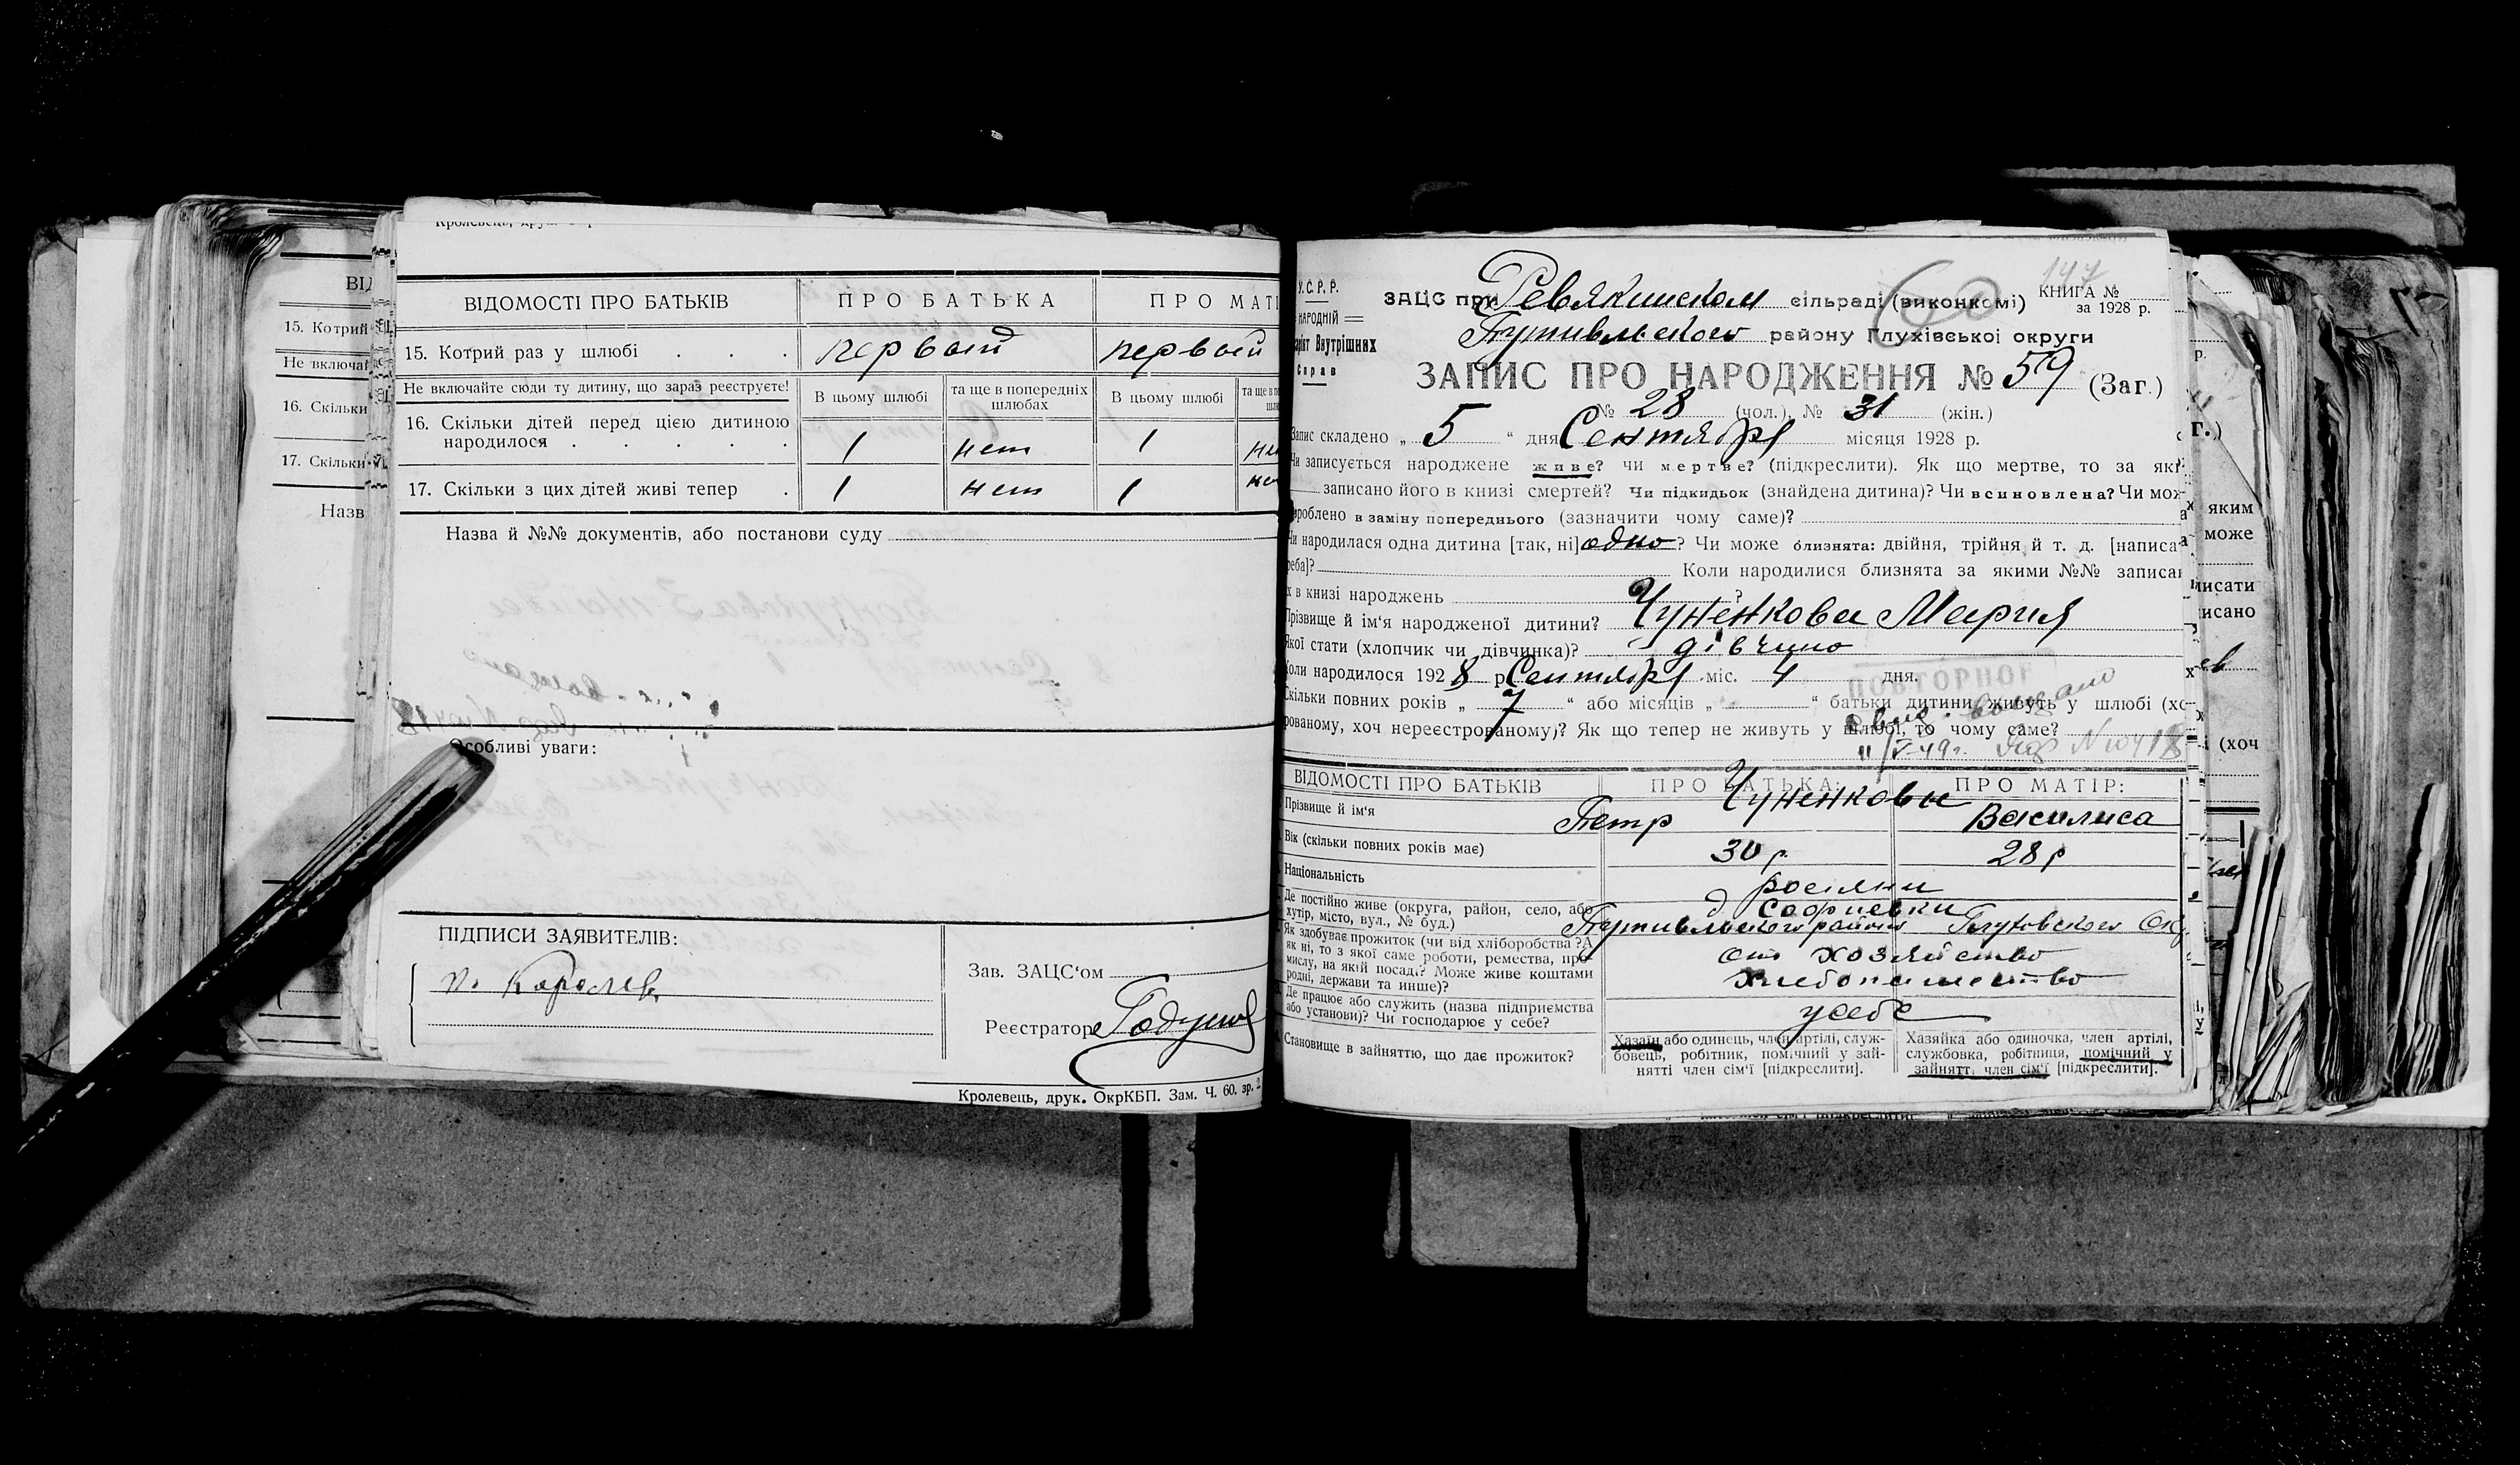 ВІДОМОСТІ ПРО БАТЬКІВ
ПРО БАТЬКА
ПРО МАТІ
15. Котрий раз у шлюбі . . .
первой
первой
Не включайте сюди ту дитину, що зараз реєструєте!
В цьому шлюбі
та ще в попередніх шлюбах
В цьому шлюбі
16. Скільки дітей перед цією дитиною
народилося . . . . .
1
нет
1
17. Скільки з цих дітей живі тепер .
1
нет
1
Назва й №№ документів, або постанови суду
Особливі уваги:
ПІДПИСИ ЗАЯВИТЕЛІВ:
Зав. ЗАЦС'ом
Реєстратор
Кролевець, друк. ОкрКБП. Зам. Ч. 60. зр.
ВІД
15. Котрий
Не включай
16. Скільки
17. Скільки
Назв
У.С.Р.Р.
НАРОДНІЙ
Внутрішних
Справ
ЗАЦС при Ревякинском сільраді (виконкомі)
КНИГА №
147
за 1928 р.
Путивльского району Глухівської округи
ЗАПИС ПРО НАРОДЖЕННЯ № 59 (Заг.)
№ 28 (чол.), № 31 (жін.)
Запис складено „ 5 “ дня Сентября місяця 1928 р.
Чи записується народжене живе? чи мертве? (підкреслити). Як що мертве, то за які
записано його в книзі смертей? Чи підкидьок (знайдена дитина)? Чи всиновлена? Чи мож
зроблено в заміну попереднього (зазначити чому саме)?
Чи народилася одна дитина [так, ні] одно? Чи може близнята: двійня, трійня й т. д. [написа
треба]? Коли народилися близнята за якими №№ записан
їх в книзі народжень ?
Прізвище й ім'я народженої дитини? Чуненкова Мария
Якої стати (хлопчик чи дівчинка)? дівчино
Коли народилося 1928 р. Сентября міс. 4 дня.
ПОВТОРНОЕ
Скільки повних років „ 7 “ або місяців „ “ батьки дитини живуть у шлюбі (хо
рованому, хоч нереєстрованому)? Як що тепер не живуть у шлюбі, то чому саме?
11/V-49г.
ВІДОМОСТІ ПРО БАТЬКІВ
ПРО БАТЬКА:
ПРО МАТІР:
Прізвище й ім'я
Чуненковы
Петр
Василиса
Вік (скільки повних років має)
30 р.
28 р
Національність
росіяни
Де постійно живе (округа, район, село, або
хутір, місто, вул., № буд.)
д Софиевки
Путивльского района Глуховского Окр
Як здобуває прожиток (чи від хліборобства? А
як ні, то з якої саме роботи, ремества, про
мислу, на якій посаді? Може живе коштами
родні, держави та инше)?
от хозяйство
хлебопашество
Де працює або служить (назва підприємства
або установи)? Чи господарює у себе?
у себе
Становище в зайняттю, що дає прожиток?
Хазаїн або одинець, член артілі, служ-
бовець, робітник, помічний у зай-
нятті член сім'ї [підкреслити].
Хазяйка або одиночка, член артілі,
службовка, робітниця, помічний у
зайнятті член сім'ї [підкреслити].
яким
може
писати
писано
(хоч